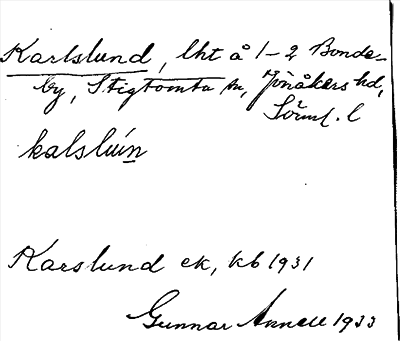 Karlslund, lht å 1-2 Bonde-
by, Stigtomta sn, Jönåkers hd,
Söml. l
kalslún
Karslund ek, kb 1931
Gunnar Annell 1933